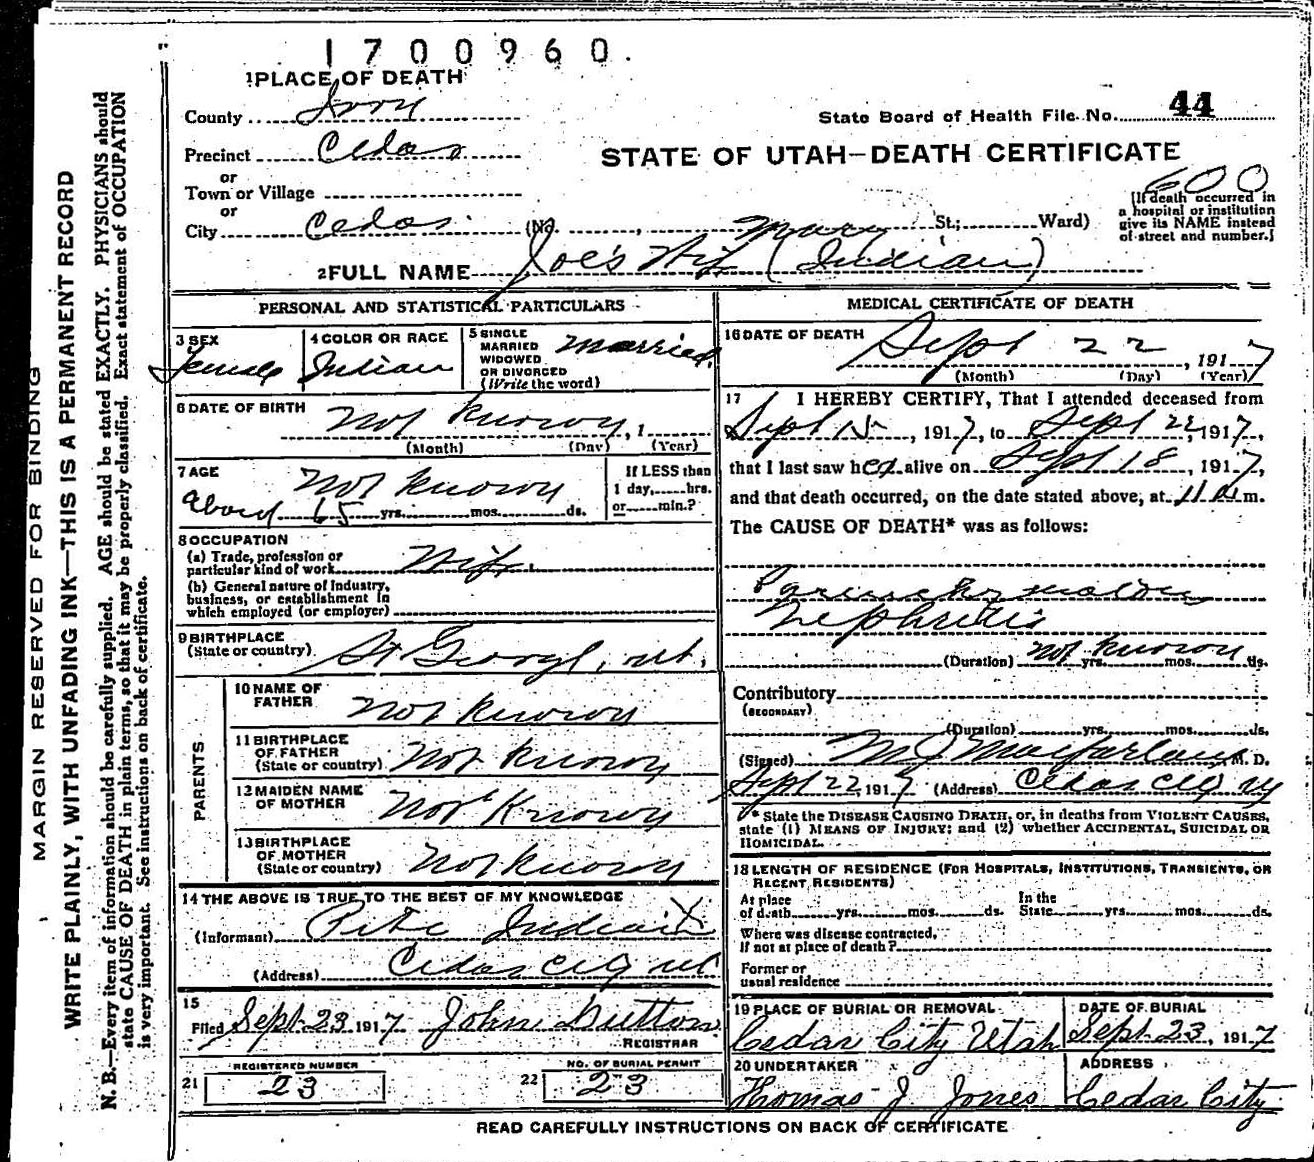 1700960.
1 PLACE OF DEATH
County Iron
State Board of Health File No. 44
Precinct Cedar
STATE OF UTAH—DEATH CERTIFICATE
or
Town or Village
or
City Cedar (No. , St.; Ward)
600
[If death occurred in a hospital or institution give its NAME instead of street and number.]
Mary
2 FULL NAME Joe's Wife (Indian)
PERSONAL AND STATISTICAL PARTICULARS
3 SEX
Female
4 COLOR OR RACE
Indian
5 SINGLE
MARRIED
WIDOWED
OR DIVORCED
(Write the word)
Married
6 DATE OF BIRTH
Not Known, 1
(Month) (Day) (Year)
7 AGE
Not Known
About 65 yrs. mos. ds.
If LESS than
1 day, hrs.
or min.?
8 OCCUPATION
(a) Trade, profession or
particular kind of work Wife.
(b) General nature of Industry,
business, or establishment in
which employed (or employer)
9 BIRTHPLACE
(State or country) St George, Ut.
PARENTS
10 NAME OF
FATHER Not Known
11 BIRTHPLACE
OF FATHER
(State or country) Not Known
12 MAIDEN NAME
OF MOTHER Not Known
13 BIRTHPLACE
OF MOTHER
(State or country) Not Known
14 THE ABOVE IS TRUE TO THE BEST OF MY KNOWLEDGE
(Informant) Pete Indian X
(Address) Cedar City Ut
15
Filed Sept. 23 1917 John Dutton
REGISTRAR
21 REGISTERED NUMBER
23
22 NO. OF BURIAL PERMIT
23
MEDICAL CERTIFICATE OF DEATH
16 DATE OF DEATH
Sept 22, 1917
(Month) (Day) (Year)
17 I HEREBY CERTIFY, That I attended deceased from
Sept 15, 1917, to Sept 22, 1917,
that I last saw her alive on Sept 18, 1917,
and that death occurred, on the date stated above, at 11 a m.
The CAUSE OF DEATH* was as follows:
Nephritis
(Duration) Not Known yrs. mos. ds.
Contributory
(SECONDARY)
(Duration) yrs. mos. ds.
(Signed) M J Macfarlane, M. D.
Sept 22, 1917 (Address) Cedar City Ut
* State the DISEASE CAUSING DEATH, or, in deaths from VIOLENT CAUSES,
state (1) MEANS OF INJURY; and (2) whether ACCIDENTAL, SUICIDAL OR
HOMICIDAL.
18 LENGTH OF RESIDENCE (FOR HOSPITALS, INSTITUTIONS, TRANSIENTS, OR
RECENT RESIDENTS)
At place
of death yrs. mos. ds.
In the
State yrs. mos. ds.
Where was disease contracted,
If not at place of death?
Former or
usual residence
19 PLACE OF BURIAL OR REMOVAL
Cedar City Utah
DATE OF BURIAL
Sept. 23, 1917
20 UNDERTAKER
Thomas J Jones
ADDRESS
Cedar City
READ CAREFULLY INSTRUCTIONS ON BACK OF CERTIFICATE
MARGIN RESERVED FOR BINDING
WRITE PLAINLY, WITH UNFADING INK—THIS IS A PERMANENT RECORD
N. B.—Every item of information should be carefully supplied. AGE should be stated EXACTLY. PHYSICIANS should
state CAUSE OF DEATH in plain terms, so that it may be properly classified. Exact statement of OCCUPATION
is very important. See instructions on back of certificate.